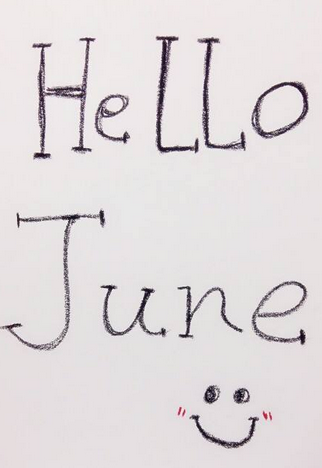 HeLLo
June